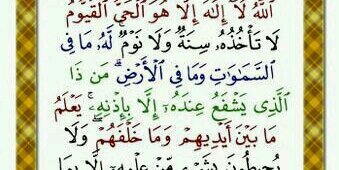 اللَّهُ لَآ إِلَٰهَ إِلَّا هُوَ الْحَيُّ الْقَيُّومُ
لَا تَأْخُذُهُۥ سِنَةٌ وَلَا نَوْمٌ ۚ لَهُۥ مَا فِي
السَّمَٰوَٰتِ وَمَا فِي الْأَرْضِ ۗ مَن ذَا
الَّذِي يَشْفَعُ عِندَهُۥٓ إِلَّا بِإِذْنِهِۦ ۚ يَعْلَمُ
مَا بَيْنَ أَيْدِيهِمْ وَمَا خَلْفَهُمْ ۖ وَلَا
يُحِيطُونَ بِشَيْءٍ مِّنْ عِلْمِهِۦٓ إِلَّا بِمَا